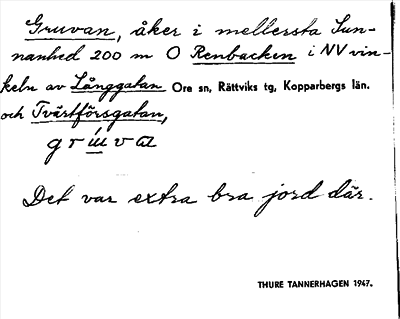 Gruvan, åker i mellersta Sun-
nanhed 200 m O Renbacken i NV vin-
keln av Långgatan Ore sn, Rättviks tg, Kopparbergs län.
och Tvärtförsgatan,
Det var extra bra jord där.
THURE TANNERHAGEN 1947.